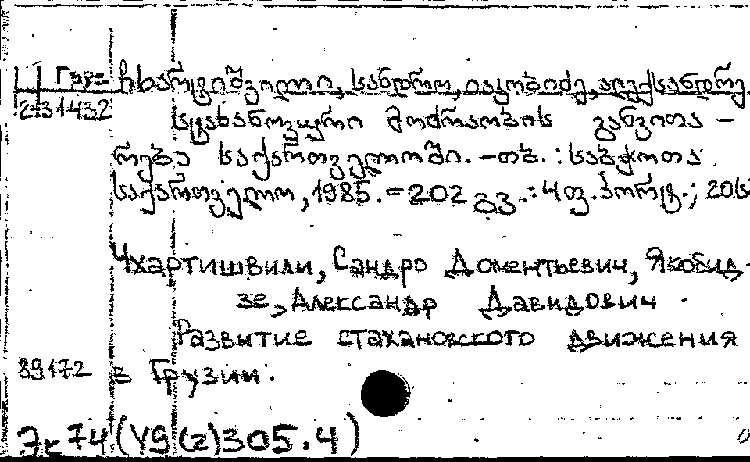 Груз ჩხარტიშვილი, სანდრო, იაკობიძე, ალექსანდრე.
2-31432 სტახანოვური მოძრაობის განვითა-
რება საქართველოში. - თბ. : საბჭოთა
საქართველო, 1985. - 202 გვ. : 4 ფ. პორტ.; 20ს
Чхартишвили, Сандро Доментьевич, Якобид-
зе, Александр Давидович.
Развитие стахановского движения
89172 в Грузии.
7к 74 (У9(2)305.4)